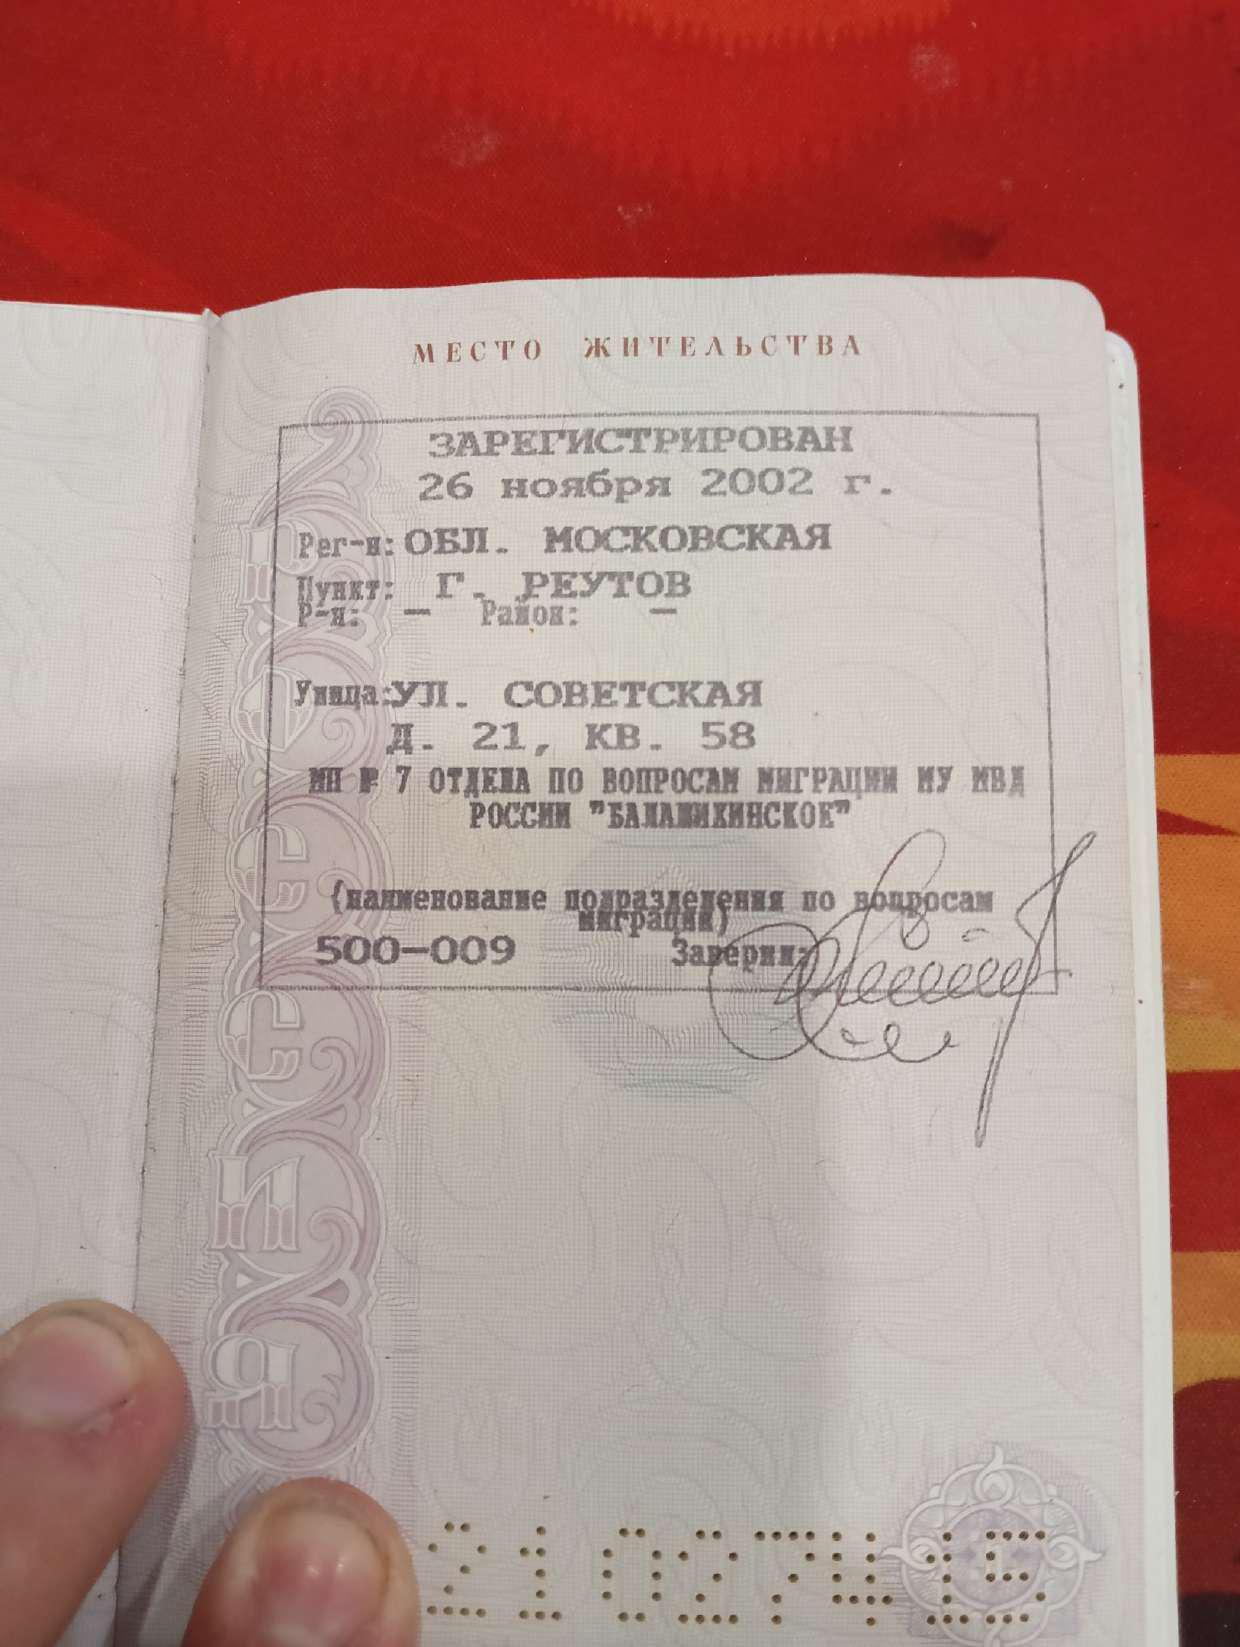 МЕСТО ЖИТЕЛЬСТВА
ЗАРЕГИСТРИРОВАН
26 ноября 2002 г.
Рег-н: ОБЛ. МОСКОВСКАЯ
Пункт: Г. РЕУТОВ
Р-н: – Район: –
Улица: УЛ. СОВЕТСКАЯ
Д. 21, КВ. 58
МП № 7 ОТДЕЛА ПО ВОПРОСАМ МИГРАЦИИ МУ МВД
РОССИИ "БАЛАШИХИНСКОЕ"
(наименование подразделения по вопросам
миграции)
500-009 Заверил: